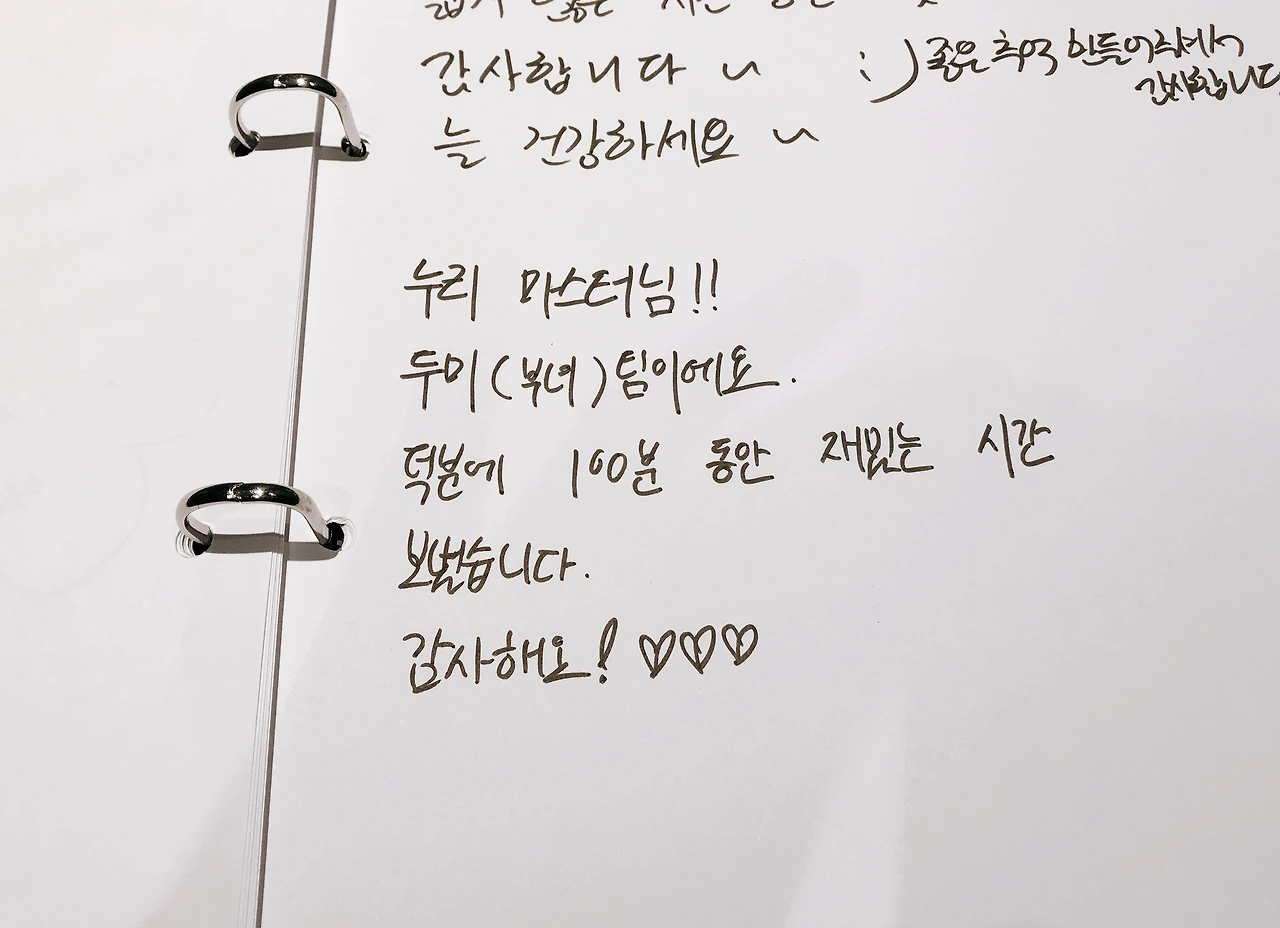 감사합니다 ~ :) 좋은 추억 만들어주셔서
감사합니다
늘 건강하세요 ~
누리 마스터님!!
두미(부녀)팀이에요.
덕분에 100분 동안 재밌는 시간
보냈습니다.
감사해요! ♡♡♡